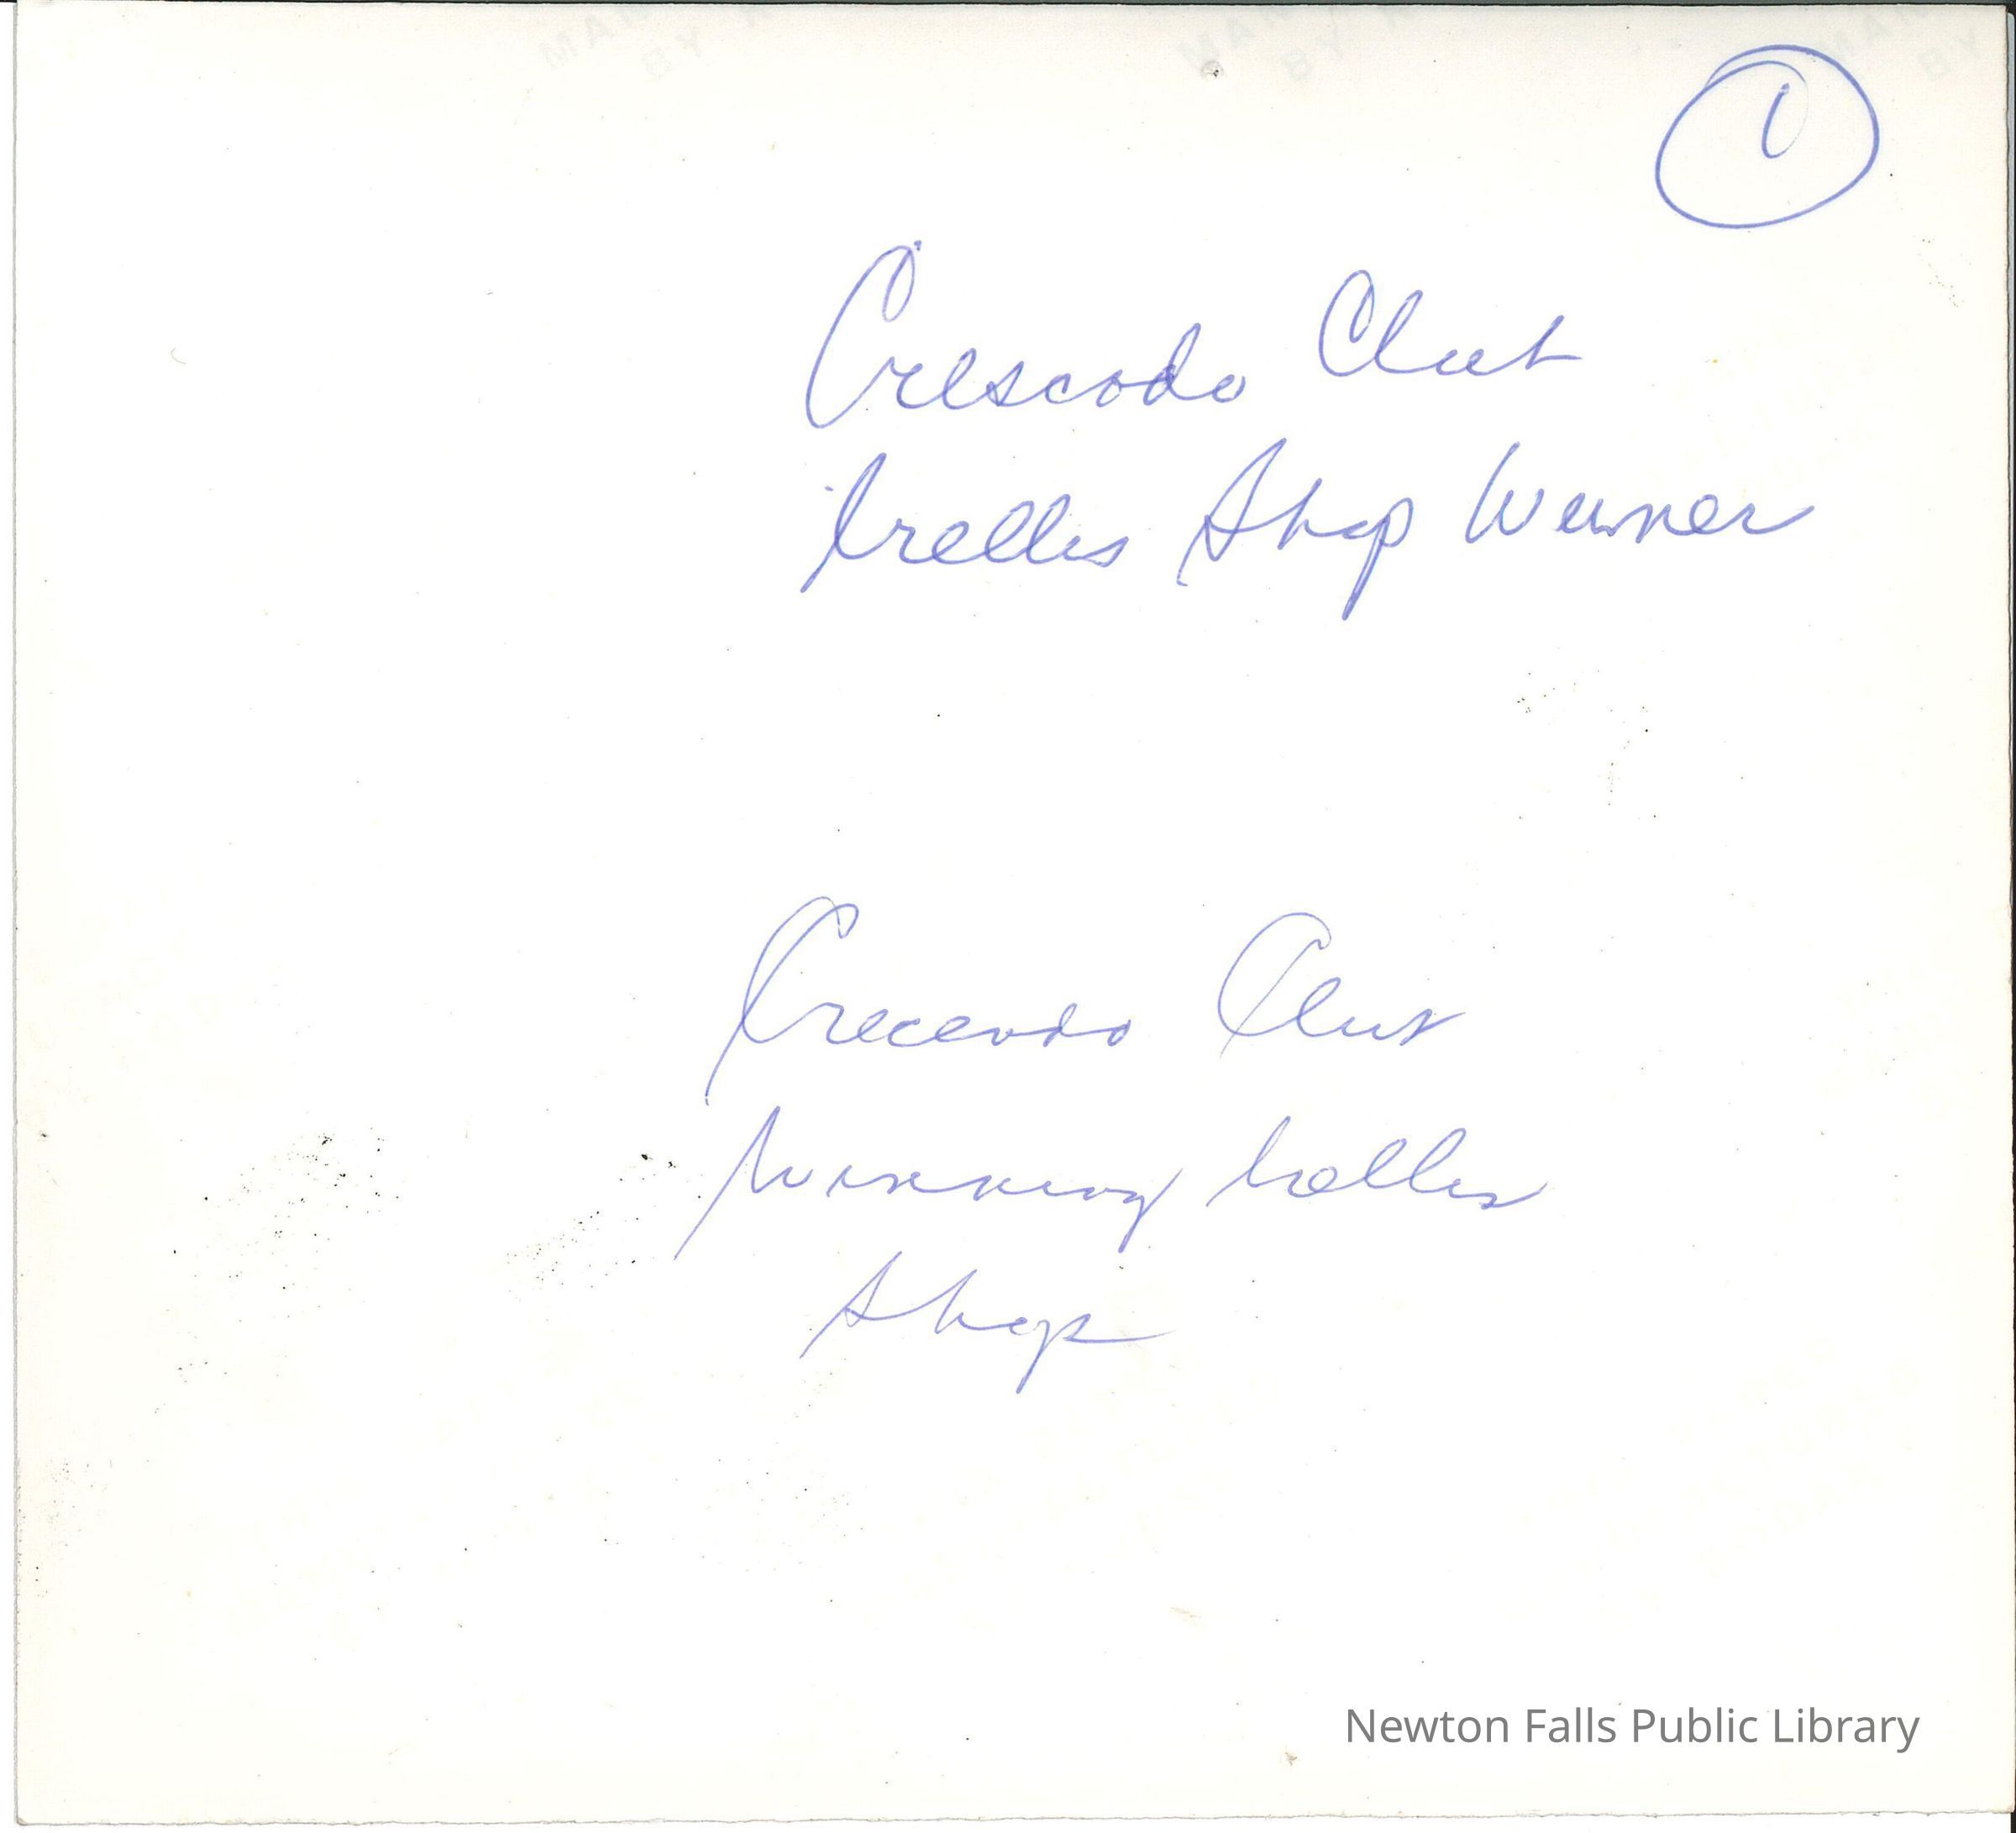 1
Crescodo Club
Trellis Shop Winner
Crecendo Club
Winning Trellis
Shop
Newton Falls Public Library